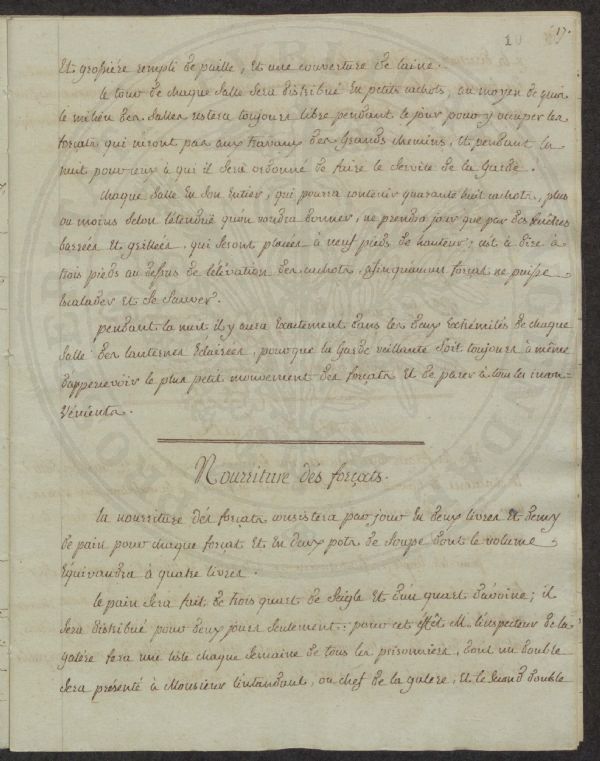 10 17.
Et grossiére rempli de paille, Et une couverture de laine.
le tour de chaque salle sera distribué En petits cachots, au moyen de quoi
le milieu des salles restera toujours libre pendant le jour pour y occuper les
forçats qui n'iront pas aux travaux des Grands chemins, Et pendant la
nuit pour ceux à qui il sera ordonné de faire le service de la Garde.
chaque salle En son Entier, qui pourra contenir quarante huit cachots, plus
ou moins selon l'étendüe qu'on voudra donner, ne prendra jour que par des fenêtres
barrées Et grillées, qui seront placées à neuf pieds de hauteur; c'est à dire à
trois pieds au dessus de l'élévation des cachots. Afin qu'aucun forçat ne puisse
Escalader Et se sauver.
pendant la nuit il y aura Exactement dans les deux Extrémités de chaque
salle des lanternes Eclairées, pour que la Garde veillante soit toujours à même
d'appercevoir le plus petit mouvement des forçats Et de parer à tous les incon-
vénients.
Nourriture des forçats.
la nourriture des forçats consistera par jour En deux livres Et demy
de pain pour chaque forçat Et En deux pots de soupe dont le volume
Equivaudra à quatre livres.
le pain sera fait de trois quart de seigle Et d'un quart d'avoine; il
sera distribué pour deux jours seulement: pour cet éffèt M. l'inspecteur de la
galére fera une liste chaque semaine de tous les prisonniers, dont un double
sera présenté à Monsieur l'intendant, ou chef de la galére, Et le second double